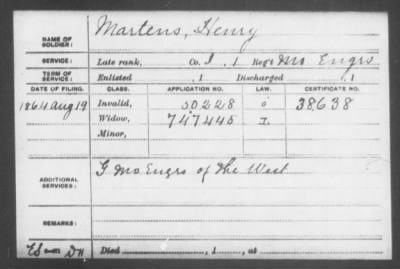 NAME OF SOLDIER: Martens, Henry
SERVICE: Late rank, Co. I, 1 Reg't Mo Engrs
TERM OF SERVICE: Enlisted , 1 Discharged , 1
DATE OF FILING. CLASS. APPLICATION NO. LAW. CERTIFICATE NO.
1864 Aug 19 Invalid, 50228 38,638
Widow, 747445
Minor,
ADDITIONAL SERVICES: G Mo Engrs of the West
REMARKS:
Died , 1 , at